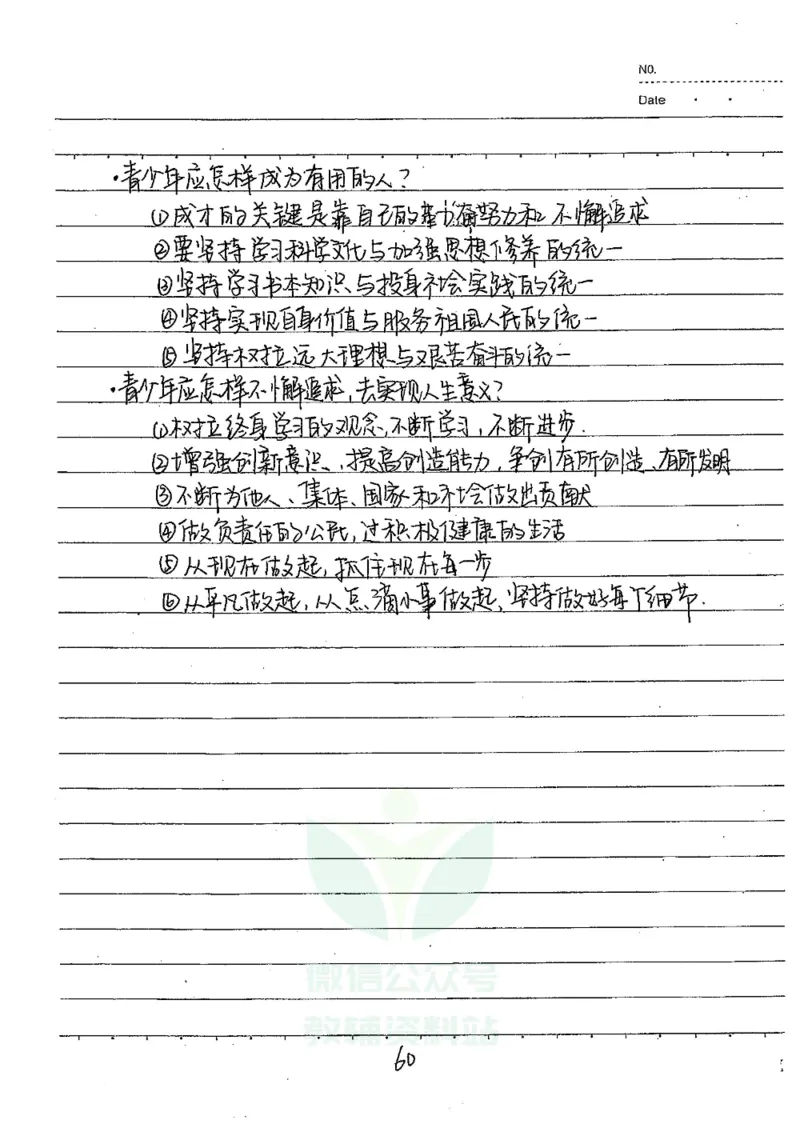 NO.
Date
·青少年应怎样成为有用的人?
①成才的关键是靠自己的勤奋努力和不懈追求
②要坚持学习科学文化与加强思想修养的统一
③坚持学习书本知识与投身社会实践的统一
④坚持实现自身价值与服务祖国人民的统一
⑤坚持树立远大理想与艰苦奋斗的统一
·青少年应怎样不懈追求,去实现人生意义?
①树立终身学习的观念,不断学习,不断进步.
②增强创新意识、提高创造能力,争创有所创造、有所发明
③不断为他人、集体、国家和社会做出贡献
④做负责任的公民,过积极健康的生活
⑤从现在做起,抓住现在每一步
⑥从平凡做起,从点滴小事做起,坚持做好每个细节.
微信公众号
教辅资料站
60